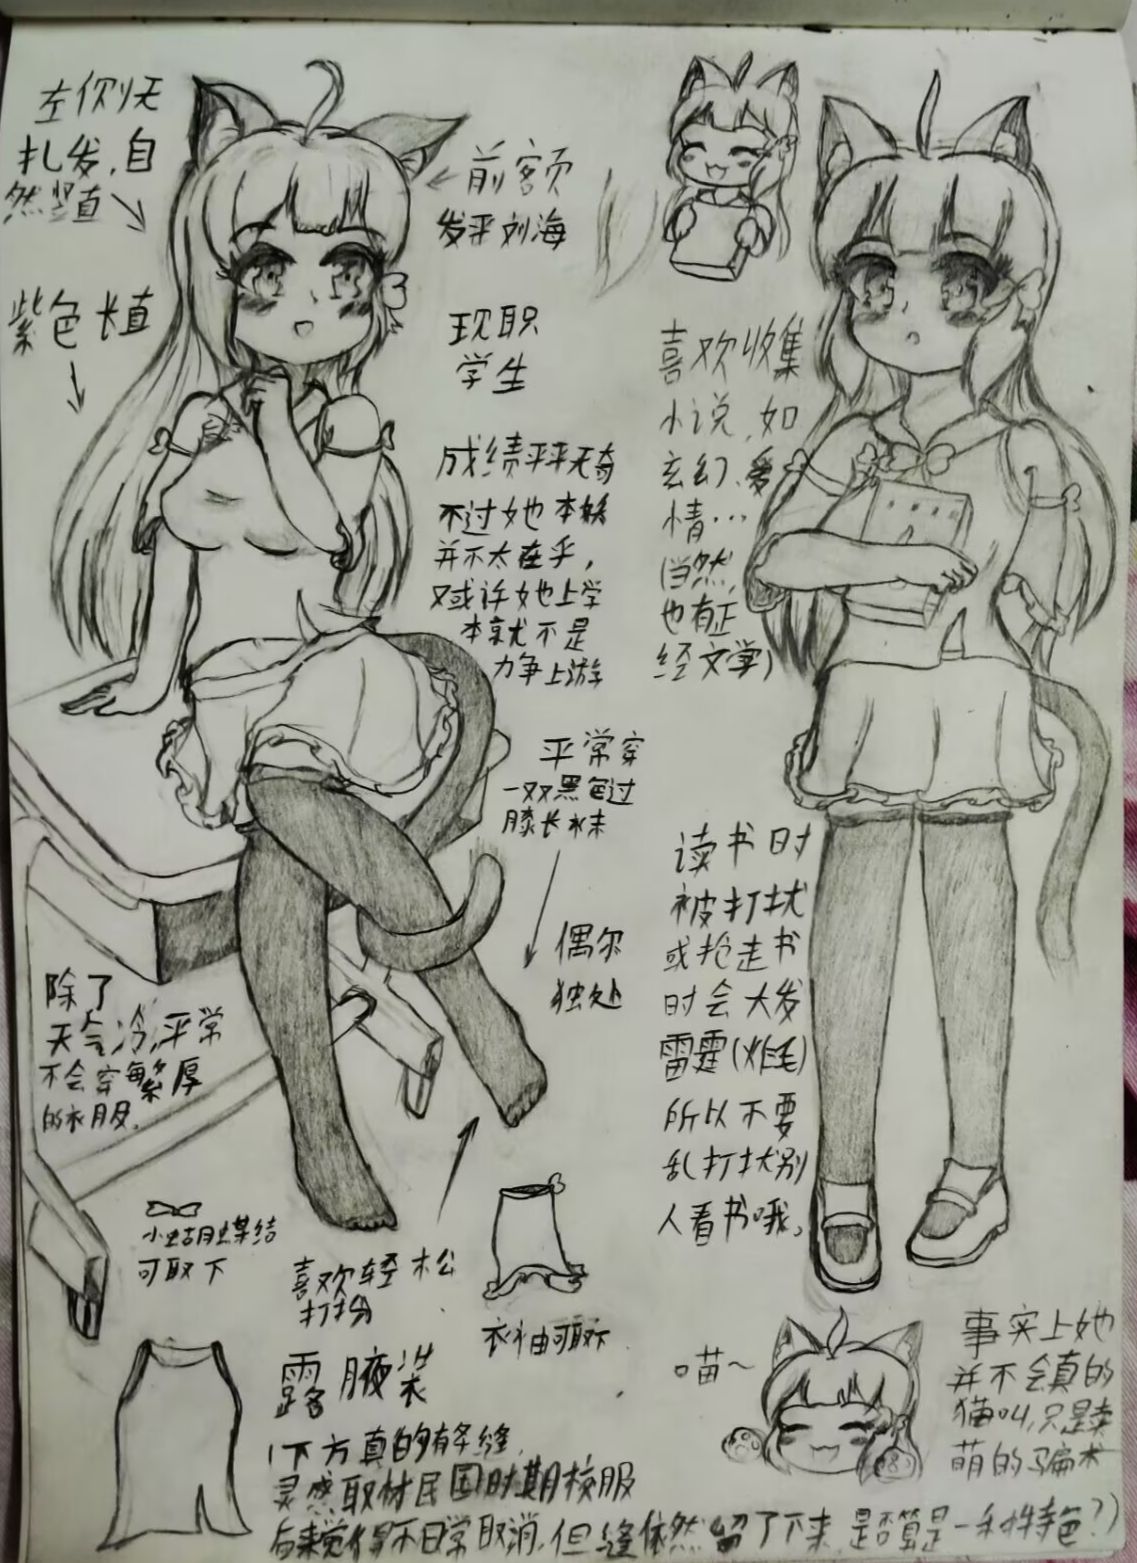 左侧无
扎发,自
然竖直
紫色长直
前客页
发平刘海
现职
学生
成绩平平无奇
不过她本妖
并不太在乎,
又或许她上学
本就不是
力争上游
喜欢收集
小说,如
玄幻、爱
情…
(当然,
也有正
经文学)
平常穿
一双黑色过
膝长袜
偶尔
独处
读书时
被打扰
或抢走书
时会大发
雷霆(炸毛)
所以不要
乱打扰别
人看书哦。
除了
天气冷,平常
不会穿繁厚
的衣服.
小蝴蝶结
可取下
喜欢轻松
打扮
衣袖可取下
露腋装
(下方真的有条缝,
灵感取材民国时期校服
后来觉得不日常取消,但缝依然留了下来,是否算是一种特色?)
喵~
事实上她
并不会真的
猫叫,只是卖
萌的骗术